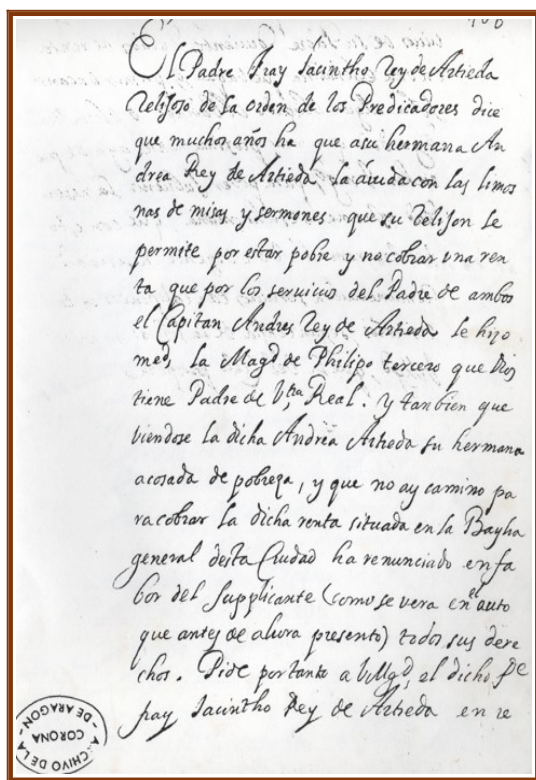 El Padre Fray Jacintho Rey de Artieda
Relijoso de la orden de los Predicadores dice
que muchos años ha que a su hermana An
drea Rey de Artieda la áiuda con las limos
nas de misas y sermones que su relijon le
permite por estar pobre y no cobrar una ren
ta que por los servicios del Padre de ambos
el Capitan Andres Rey de Artieda le hizo
med, la Magd de Philipo tercero que Dios
tiene Padre de V,tra Real. y tanbien que
viendose la dicha Andrea Artieda su hermana
acosada de pobreza, y que no ay camino pa
ra cobrar la dicha renta situada en la Baylia
general desta Ciudad ha renunciado en fa
bor del supplicante (como se vera en el auto
que antes de ahora presento) todos sus dere
chos. Pide por tanto a V Magd, el dicho Pe
fray Jacintho Rey de Artieda en re
A CHIVO DE LA
CORONA
- DE ARAGON -